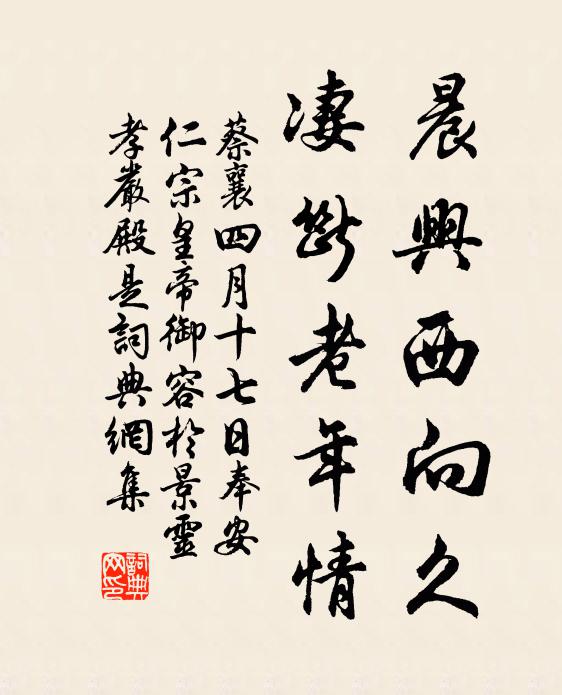 晨興西向久
淒斷老年情
蔡襄四月十七日奉安
仁宗皇帝御容於景靈
孝嚴殿是詞典網集
詞典
网印